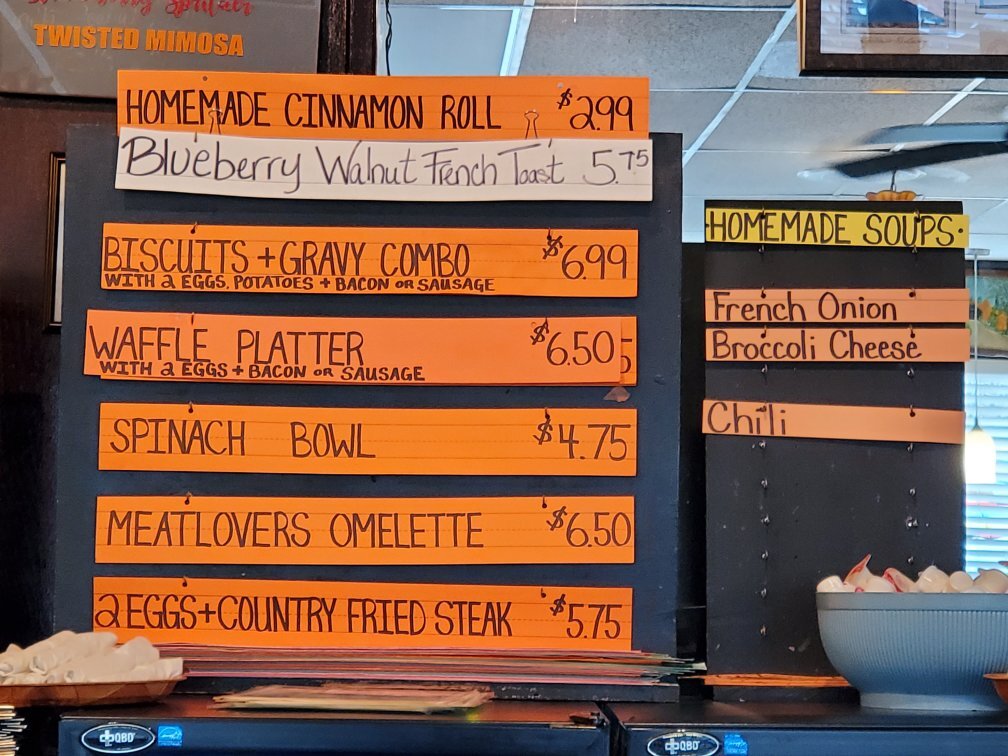 TWISTED MIMOSA
HOMEMADE CINNAMON ROLL $2.99
Blueberry Walnut French Toast 5.75
BISCUITS + GRAVY COMBO $6.99
WITH 2 EGGS, POTATOES + BACON OR SAUSAGE
WAFFLE PLATTER $6.50
WITH 2 EGGS + BACON OR SAUSAGE
SPINACH BOWL $4.75
MEATLOVERS OMELETTE $6.50
2 EGGS + COUNTRY FRIED STEAK $5.75
·HOMEMADE SOUPS·
French Onion
Broccoli Cheese
Chili
QBD
QBD